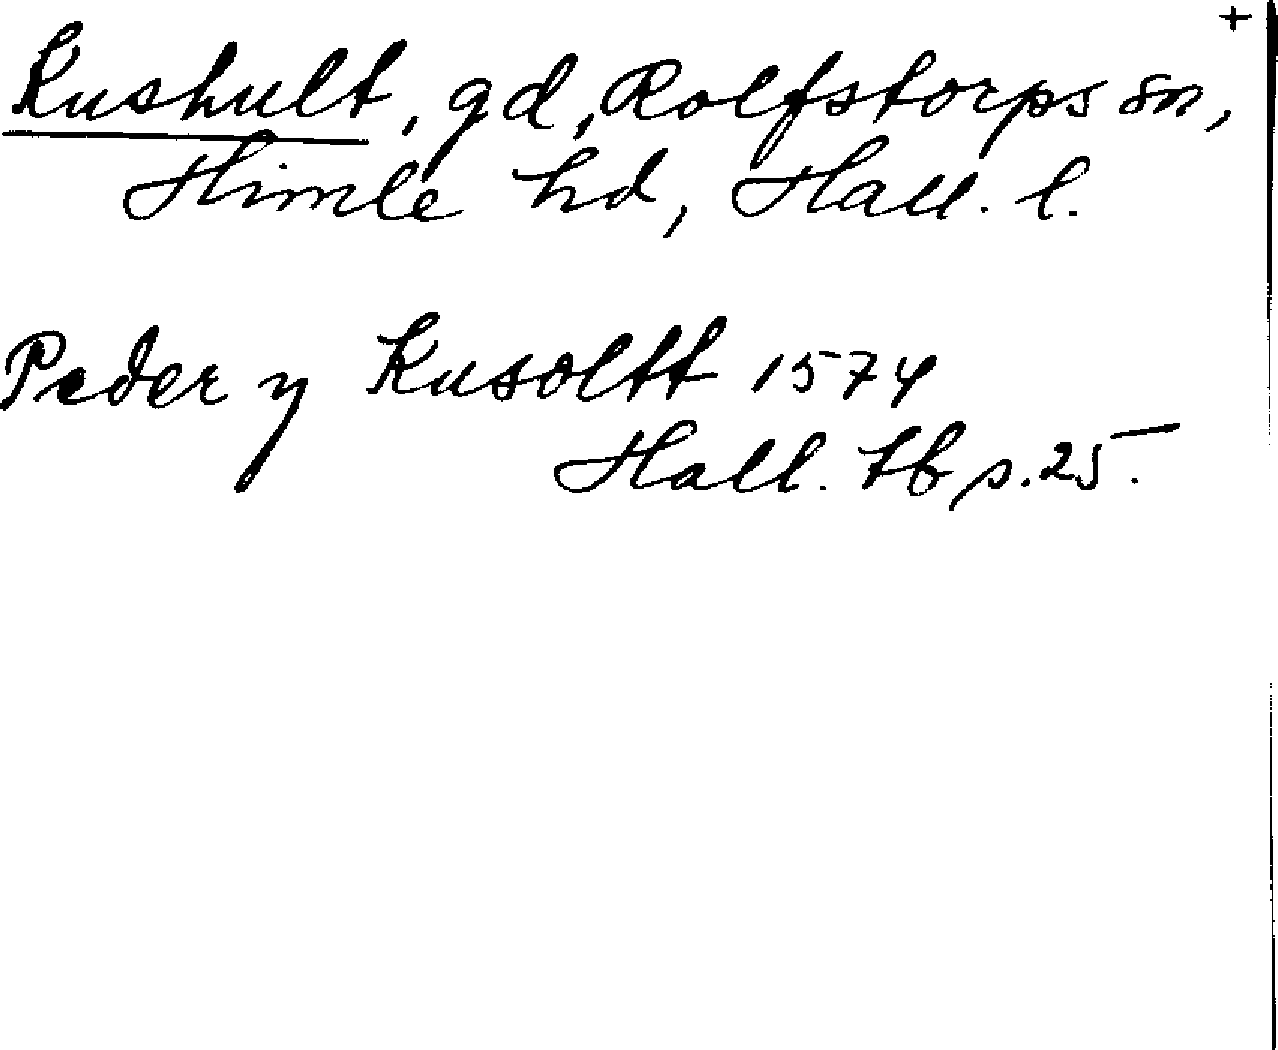 +
Kushult, gd, Rolfstorps sn,
Himle hd, Hall. l.
Peder y Kusoltt 1574
Hall. tb s. 25.